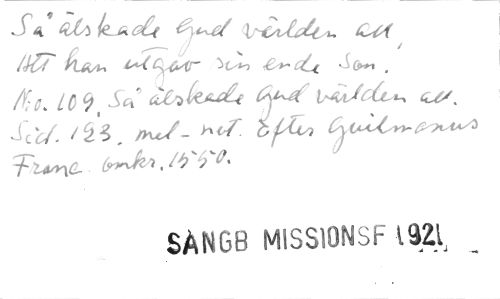 Så älskade Gud världen all,
Att han utgav sin ende Son.
N:o. 109. Så älskade Gud världen all.
Sid. 123. mel-not. efter Guilmanus
Franc. omkr. 1550.
SÅNGB MISSIONSF 1921